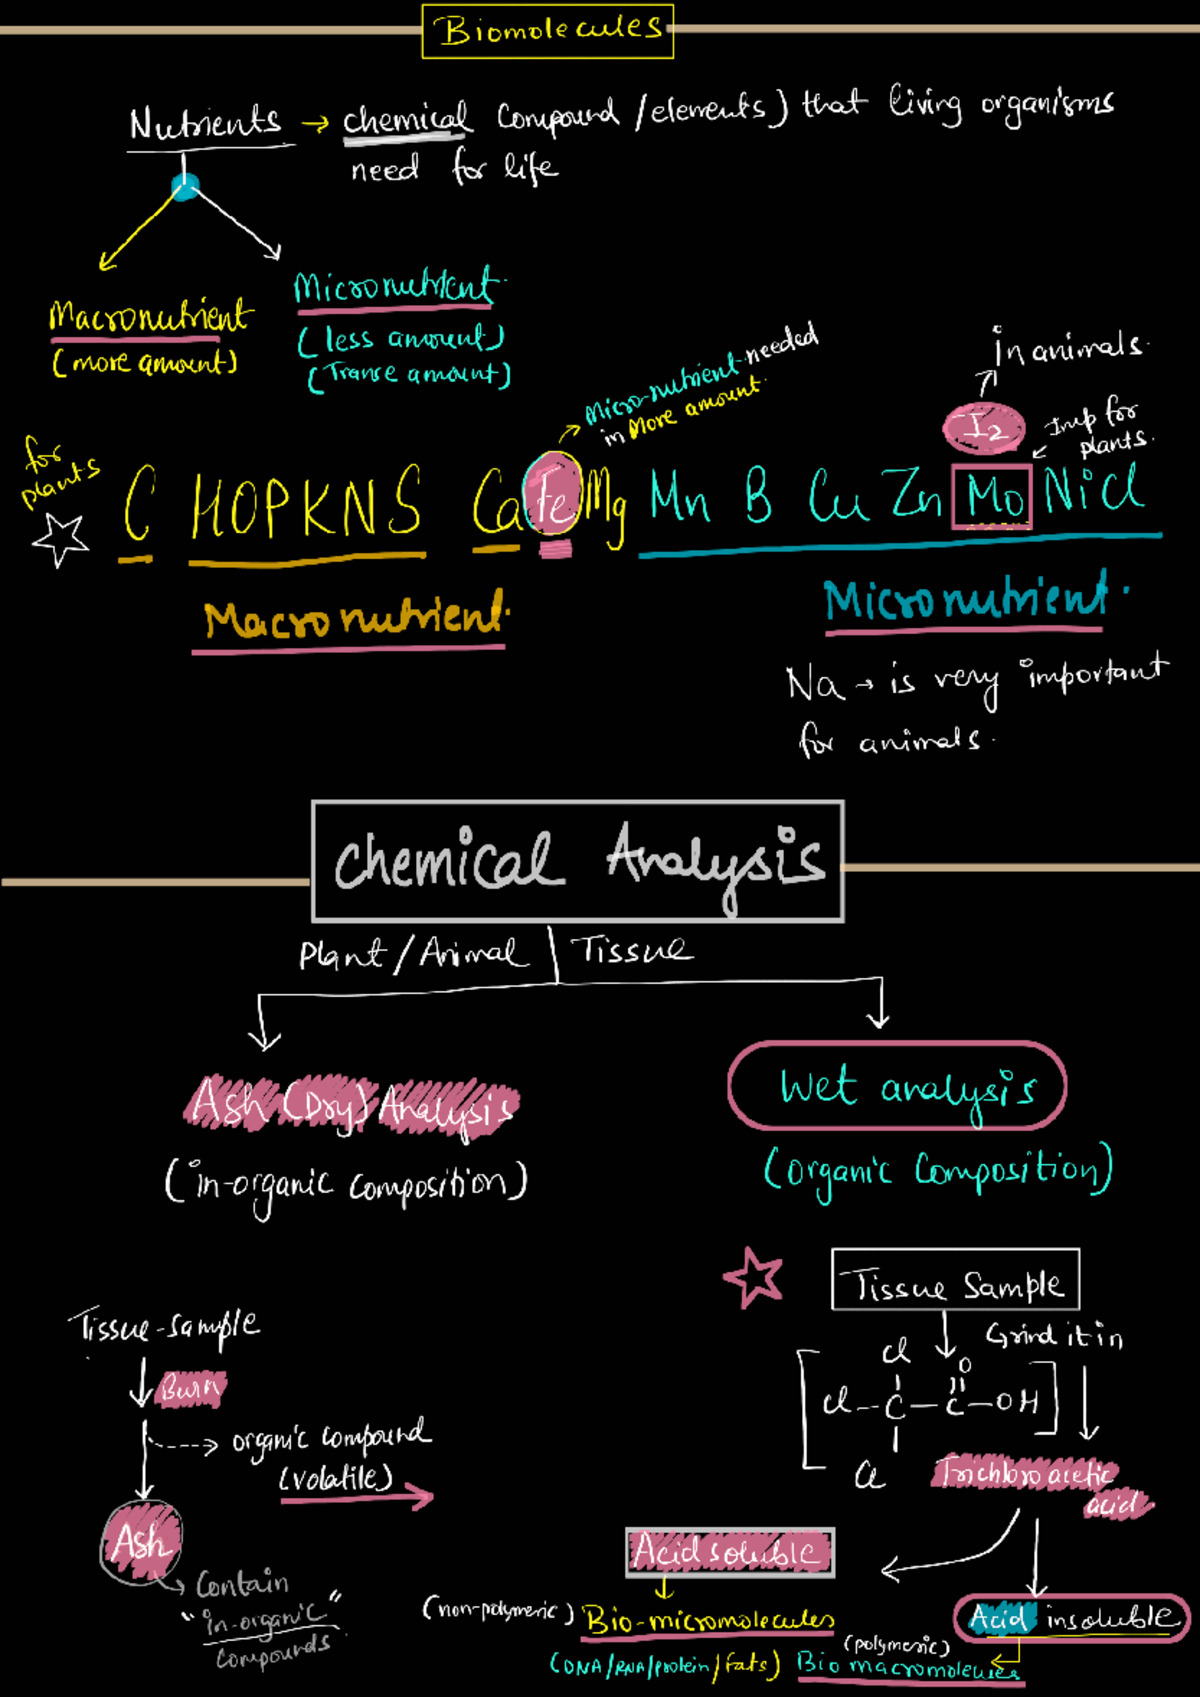 Biomolecules
Nutrients → chemical compound /elements) that living organisms
need for life
Macronutrient
(more amount)
Micronutrient
(less amount)
(Transe amount)
Micro-nutrient needed
in More amount
in animals
I2
Imp for
plants
for
plants
C HOPKNS Ca Fe Mg Mn B Cu Zn Mo Ni Cl
Macronutrient
Micronutrient
Na → is very important
for animals
Chemical Analysis
Plant/Animal Tissue
Ash (Dry) Analysis
(in-organic composition)
Wet analysis
(organic composition)
Tissue-sample
Burn
→ organic compound
(volatile)
Ash
→ Contain
"in-organic"
compounds
Tissue Sample
Grind it in
Cl
O
Cl—C—C—OH
Cl
Trichloro acetic
acid
Acid soluble
Acid insoluble
(non-polymeric) Bio-micromolecules
(polymeric)
(DNA/RNA/protein/fats) Bio macromolecules